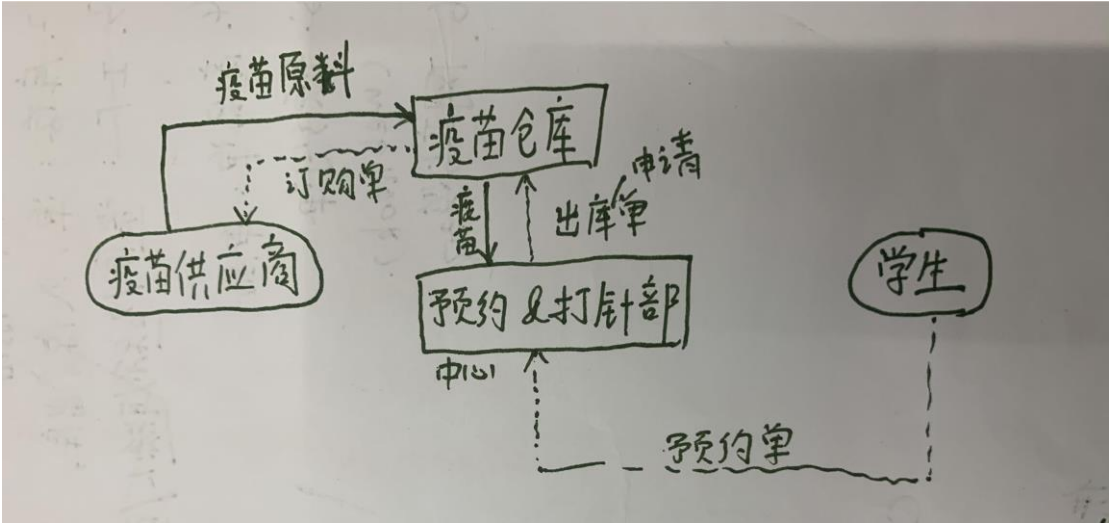 疫苗原料
疫苗仓库
订购单
申请
疫苗
出库单
疫苗供应商
预约&打针部
学生
中心
预约单